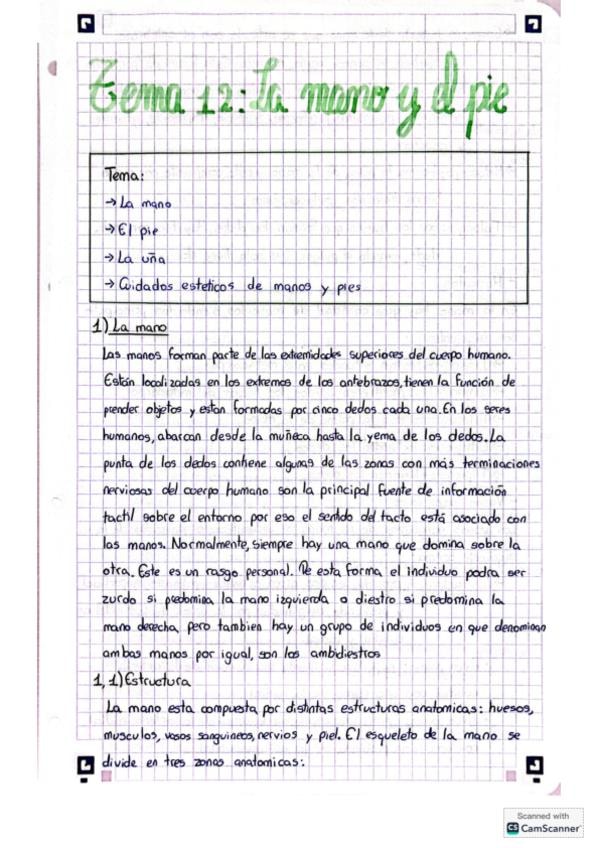 Tema 12: La mano y el pie
Tema:
→ La mano
→ El pie
→ La uña
→ Cuidados esteticos de manos y pies
1) La mano
Las manos forman parte de las extremidades superiores del cuerpo humano.
Están localizadas en los extremos de los antebrazos, tienen la función de
prender objetos y estan formadas por cinco dedos cada una. En los seres
humanos, abarcan desde la muñeca hasta la yema de los dedos. La
punta de los dedos contiene algunas de las zonas con más terminaciones
nerviosas del cuerpo humano son la principal fuente de información
tactil sobre el entorno por eso el sentido del tacto está asociado con
las manos. Normalmente, siempre hay una mano que domina sobre la
otra. Este es un rasgo personal. De esta forma el individuo podra ser
zurdo si predomina la mano izquierda o diestro si predomina la
mano derecha, pero tambien hay un grupo de individuos en que denominan
ambas manos por igual, son los ambidiestros
1,1) Estructura
La mano esta compuesta por distintas estructuras anatomicas: huesos,
musculos, vasos sanguineos, nervios y piel. El esqueleto de la mano se
divide en tres zonas anatomicas:
Scanned with
CS CamScanner